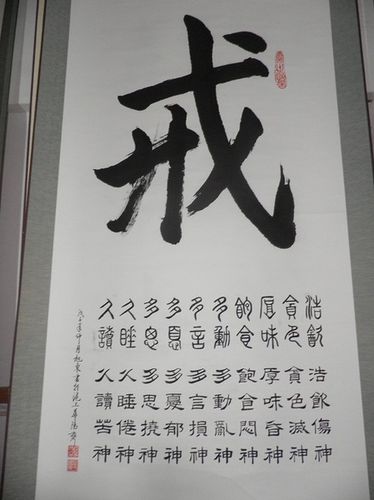 戒
浩飲 浩飲傷神
貪色 貪色滅神
厚味 厚味昏神
飽食 飽食悶神
多動 多動亂神
多言 多言損神
多憂 多憂郁神
多思 多思撓神
久睡 久睡倦神
久讀 久讀苦神
戊子年仲月旭東書於